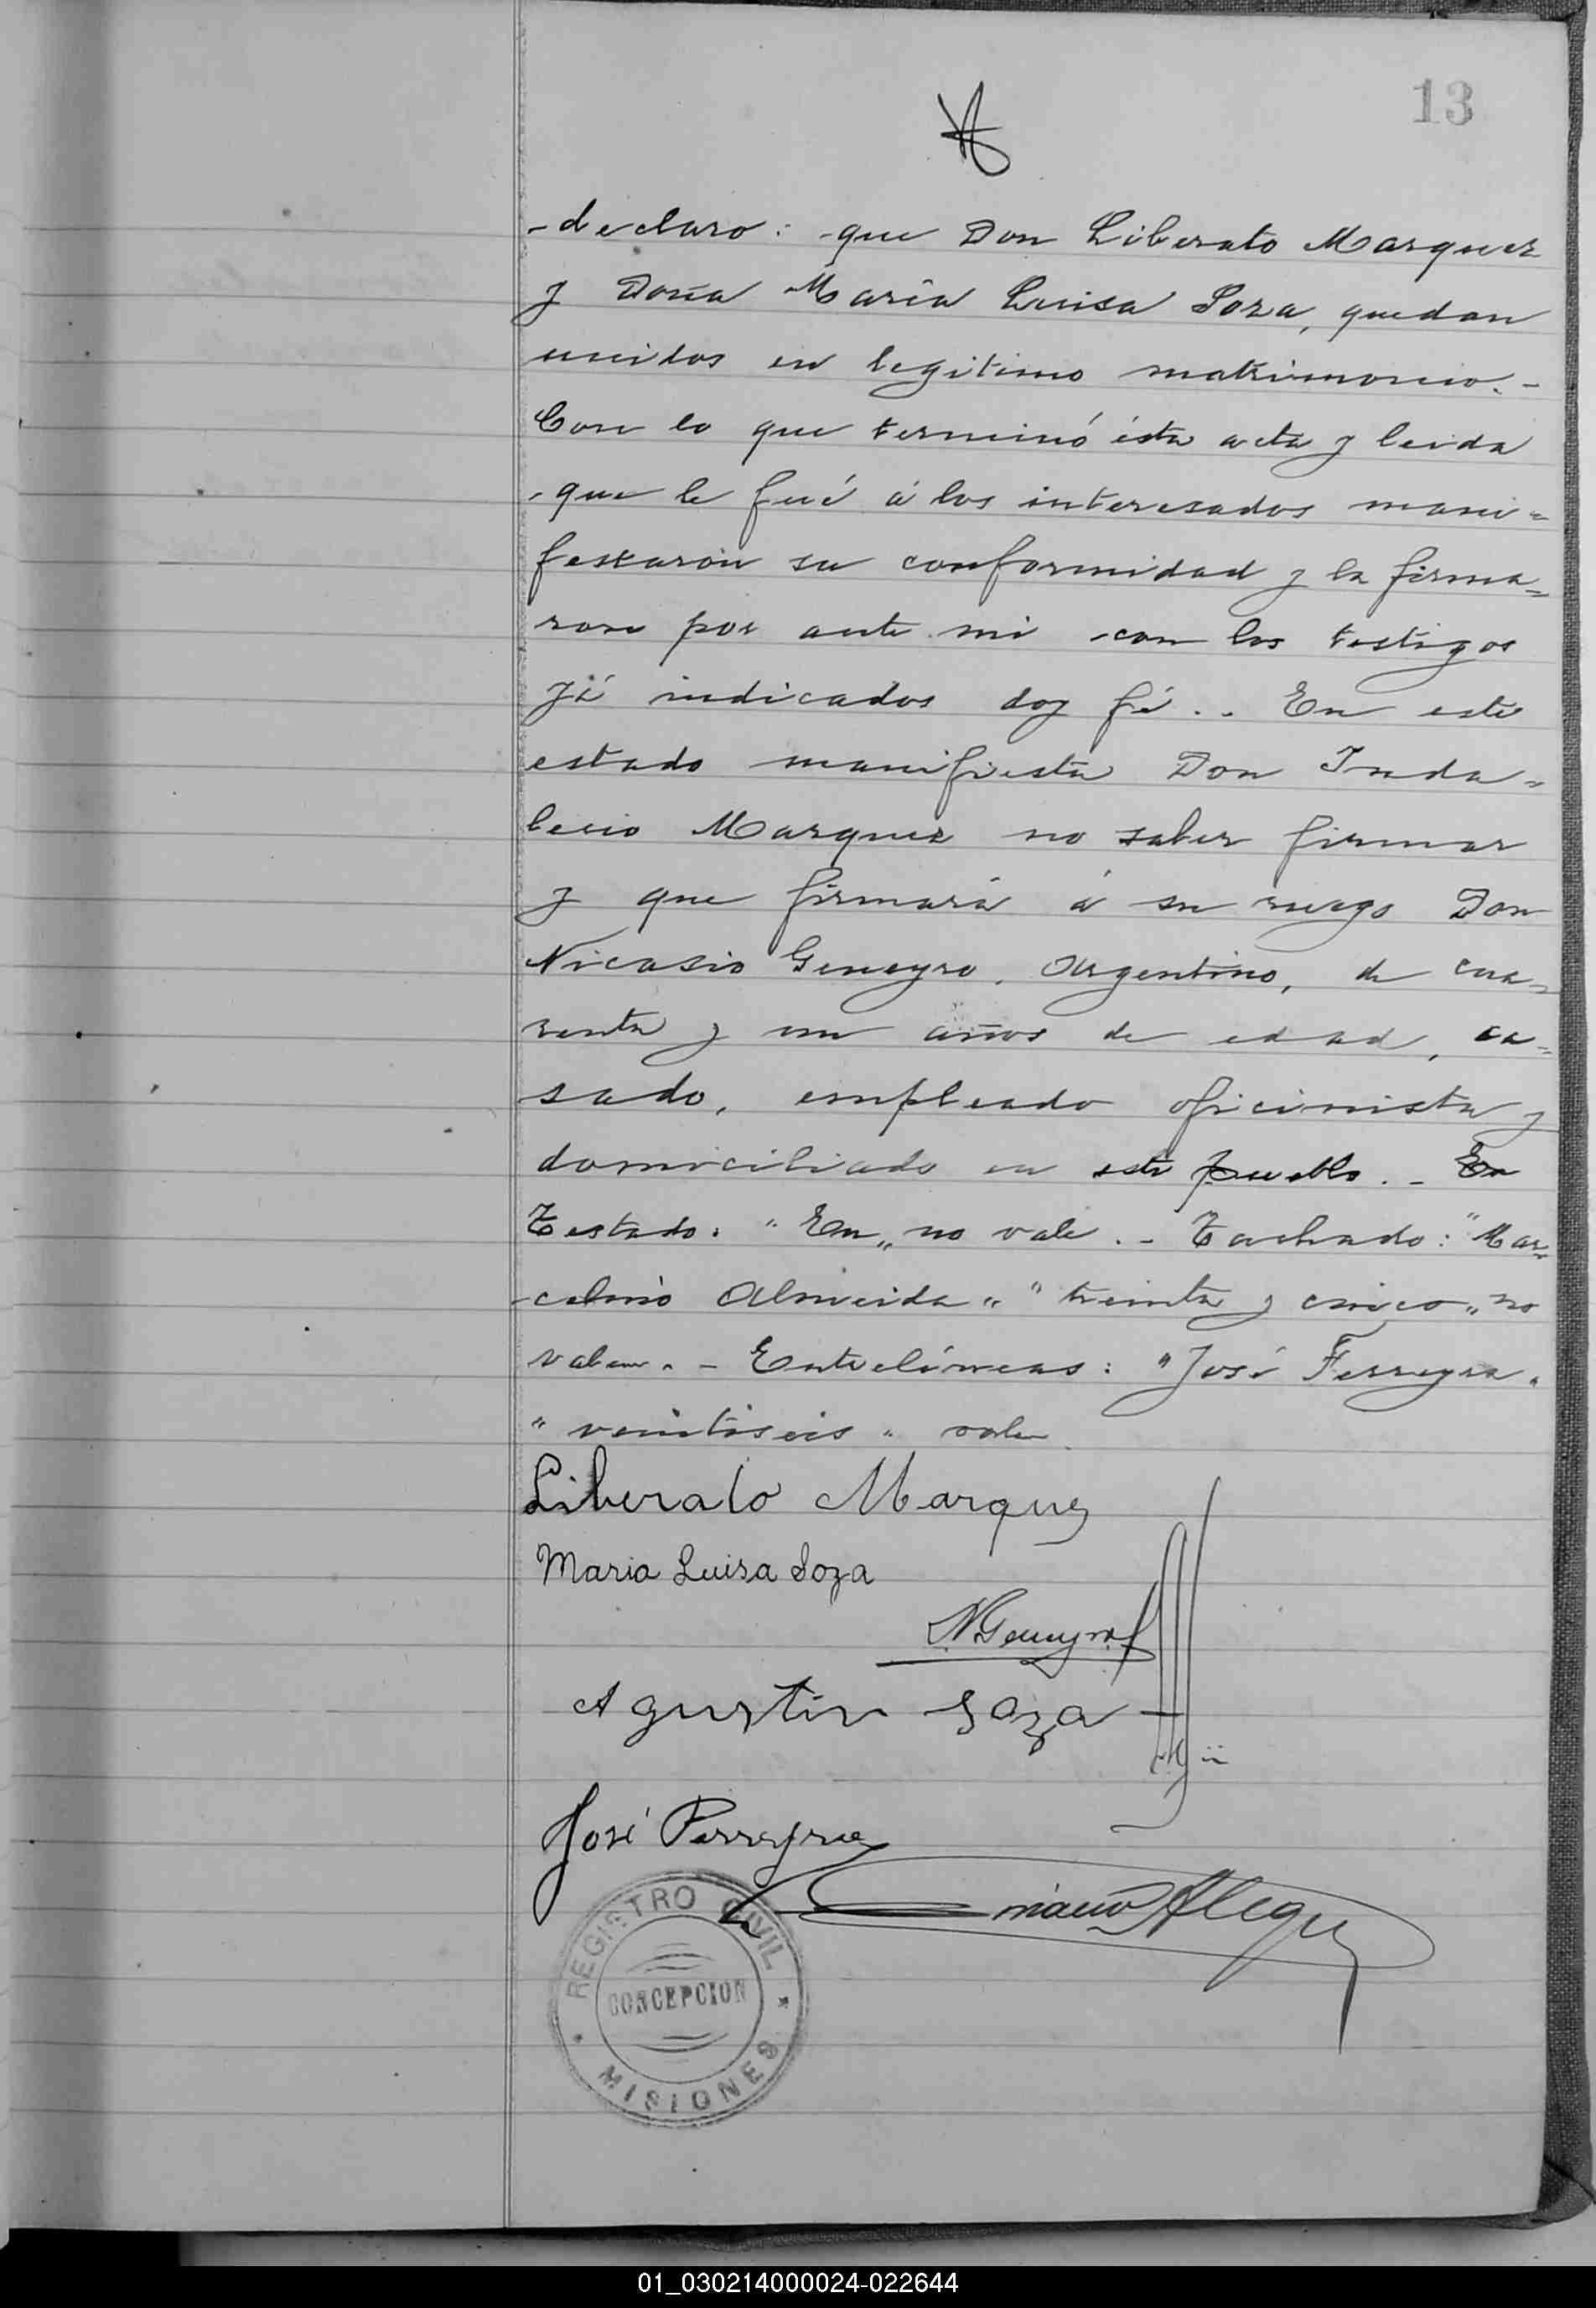 13
-declaro: que Don Liberato Marquez
y Doña María Luisa Soza, quedan
unidos en legitimo matrimonio.-
Con lo que terminó ésta acta y leida
que le fué á los interesados mani=
festarón su conformidad y la firma=
ron por ante mi con los testigos
yá indicados doy fé.- En este
estado manifiesta Don Inda=
lecio Marquez no saber firmar
y que firmará á su ruego Don
Nicasio Geneyro, Argentino, de cua=
renta y un años de edad, ca=
sado, empleado oficinista y
domiciliado en este pueblo.- En
Testado: "En" no vale.- Tachado: "Mar=
celino Almeida" "treinta y cinco" no
valen.- Entrelíneas: "José Ferreyra"
"veintiseis" valen
Liberato Marquez
Maria Luisa Soza
N. Geneyro
Agustin Soza
José Perreyra
Alegre
REGISTRO CIVIL
CONCEPCION
MISIONES
01_030214000024-022644